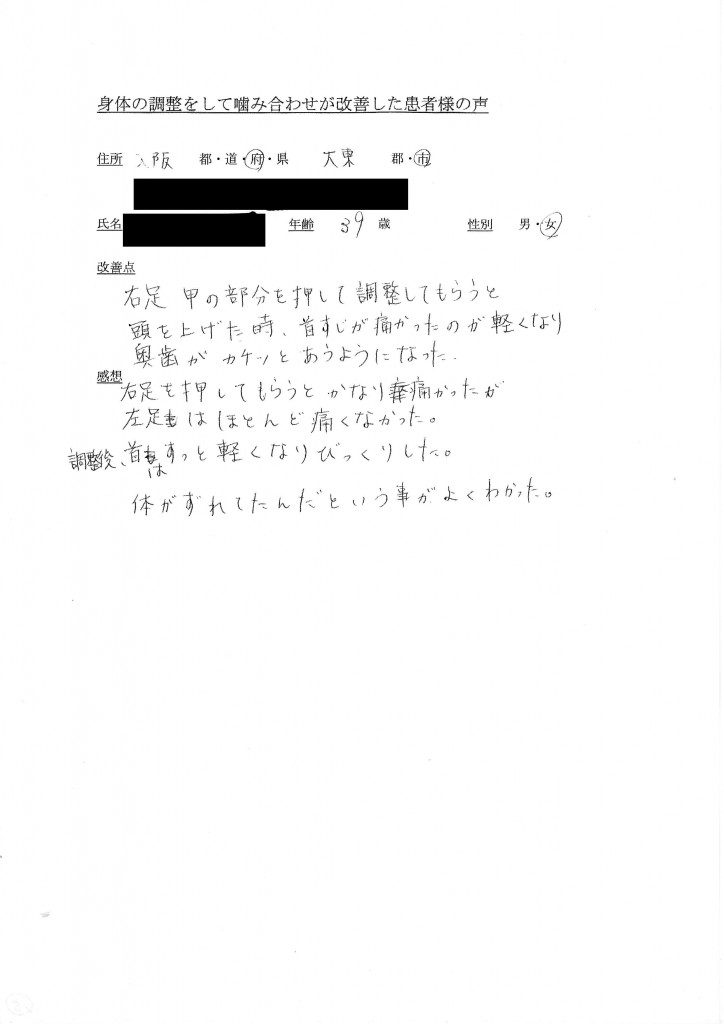 身体の調整をして噛み合わせが改善した患者様の声
住所 大阪 都・道・府・県 大東 郡・市
氏名 年齢 39 歳 性別 男・女
改善点
右足 甲の部分を押して調整してもらうと
頭を上げた時、首すじが痛かったのが軽くなり
奥歯がカチッとあうようになった.
感想
右足を押してもらうとかなり痛かったが
左足はほとんど痛くなかった。
調整後、首はすっと軽くなりびっくりした。
体がずれてたんだという事がよくわかった。